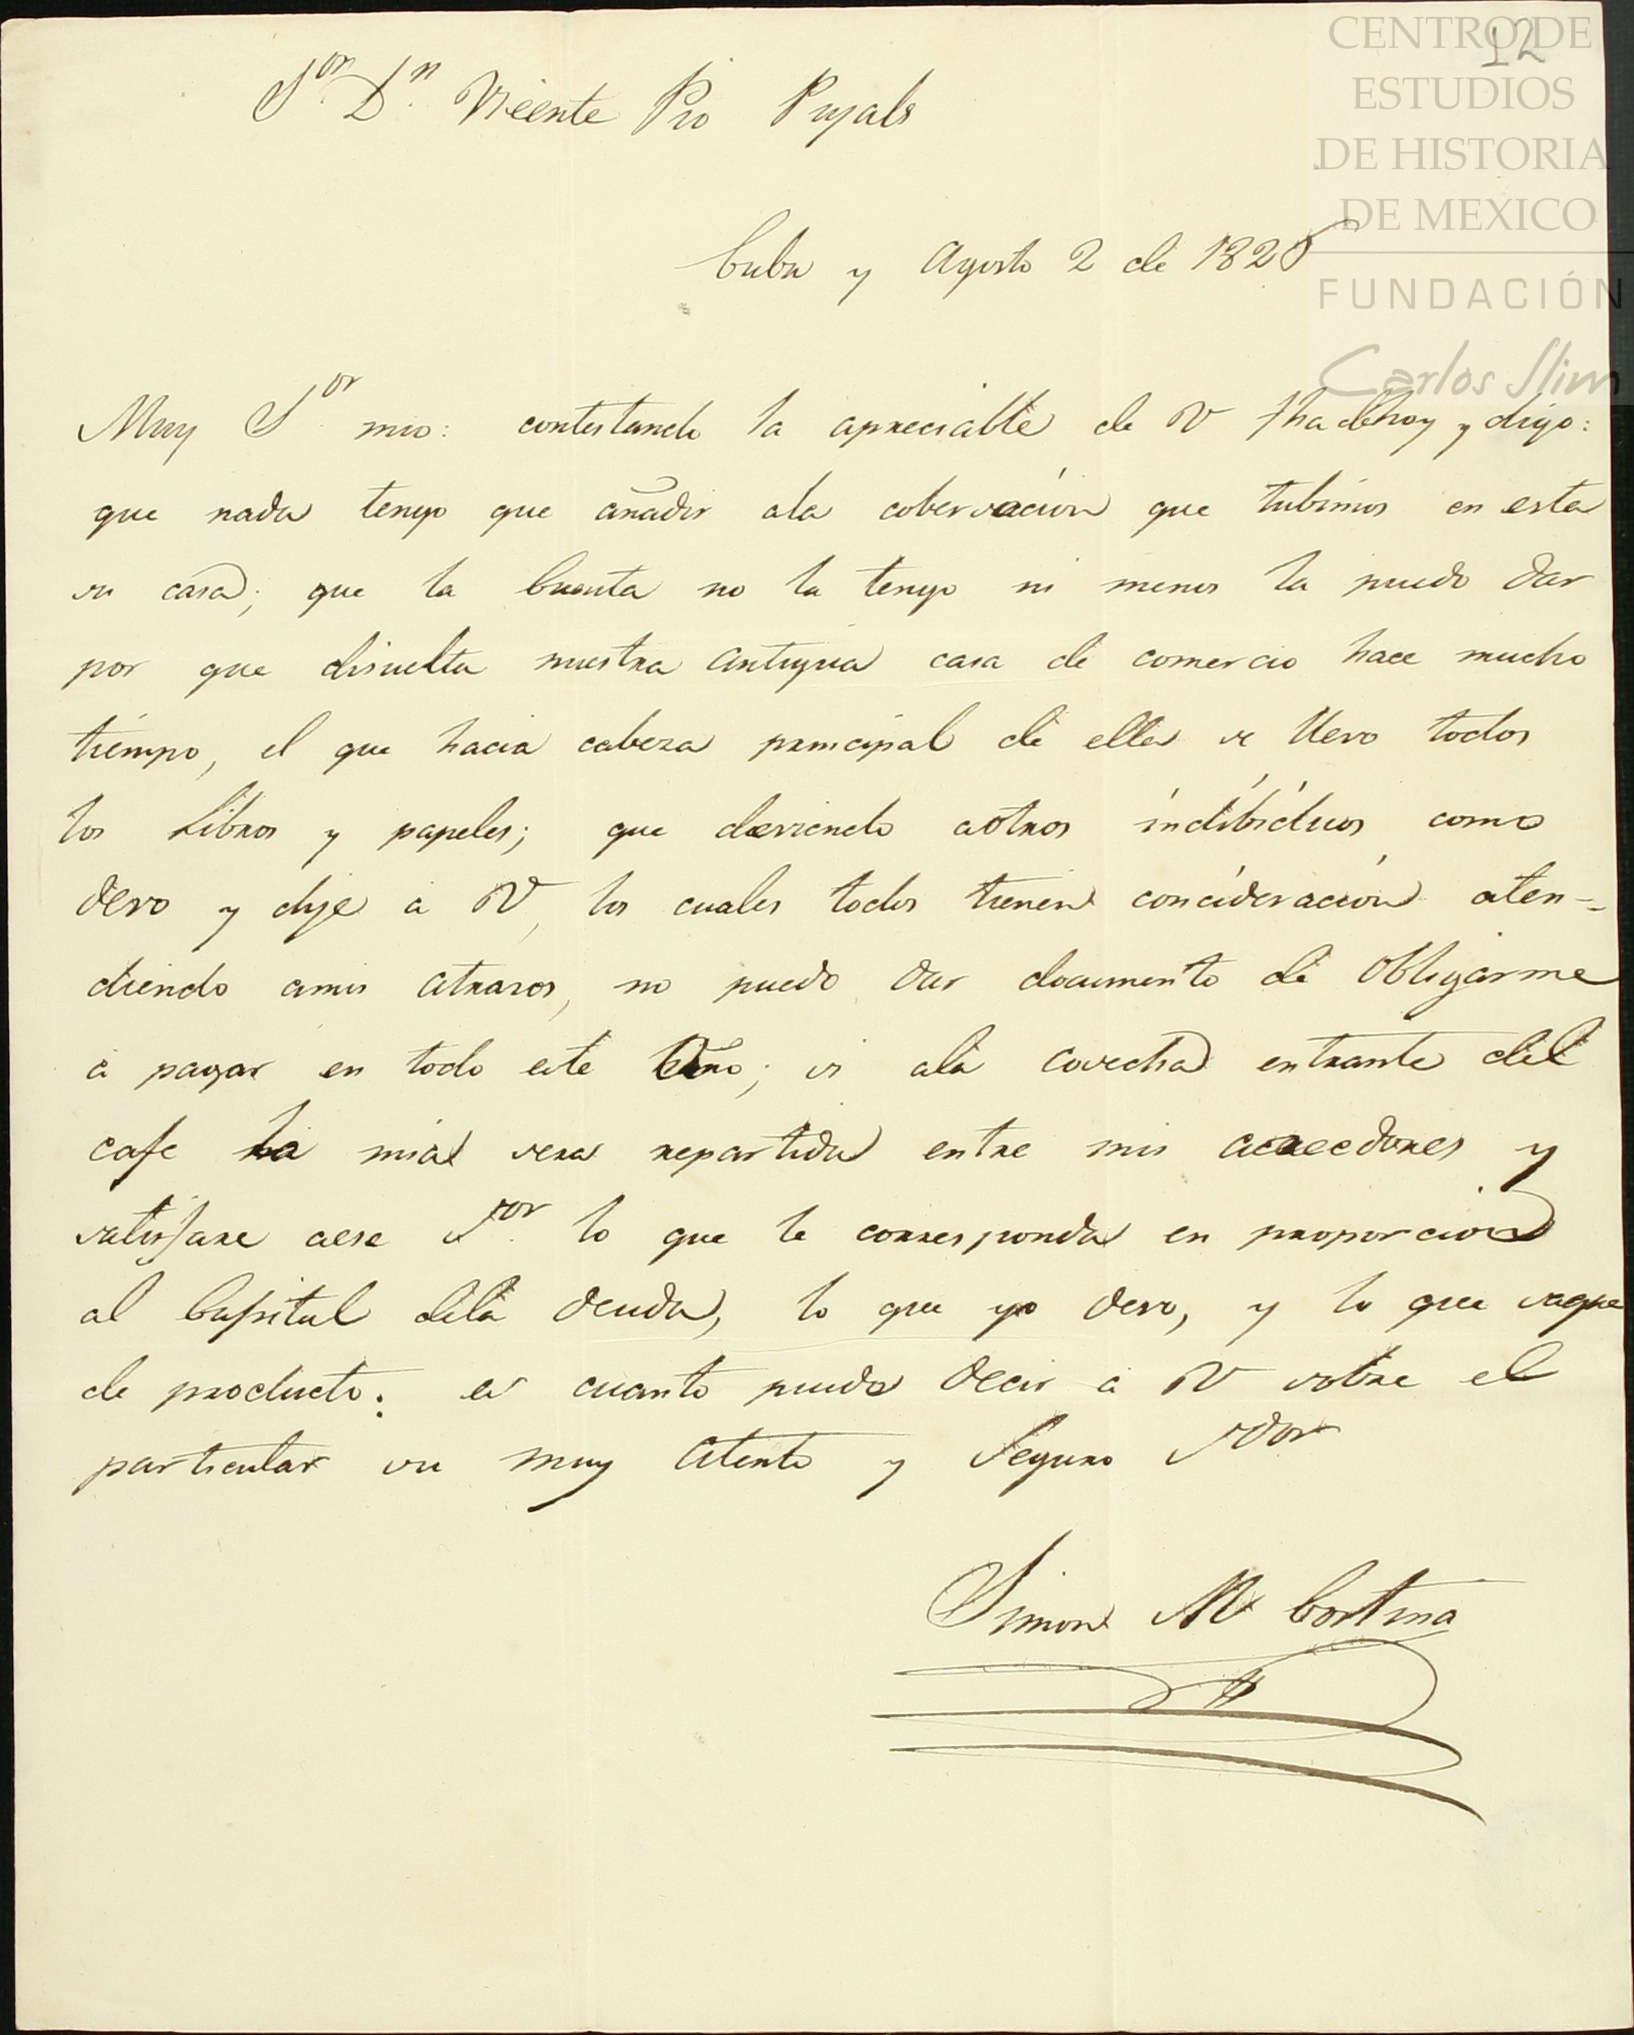 12
CENTRO DE
ESTUDIOS
DE HISTORIA
DE MEXICO
FUNDACIÓN
Carlos Slim
Sor. Dn. Vicente Pio Pujals
Cuba y Agosto 2 de 1825
Muy Sor. mio: contestando la apreciable de V fha dehoy y digo:
que nada tengo que añadir ala cobersación que tubimos en esta
su casa; que la Cuenta no la tengo ni menos la puedo dar
por que disuelta nuestra antigua casa de comercio hace mucho
tiempo, el que hacia cabeza principal de ella se llevo todos
los Libros y papeles; que deviendo aotros indibiduos como
devo y dije a V, los cuales todos tienen concideración aten-
diendo amis atrasos, no puedo dar documento de obligarme
a pagar en todo este año; si ala covecha entrante del
cafe la mia sera repartida entre mis acreedores y
satisfare aese Sor. lo que le corresponda en proporcion
al Capital dela deuda, lo que yo devo, y lo que saque
de producto: es cuanto puedo decir a V sobre el
particular su muy atento y Seguro Sdor.
Simon M Cortina